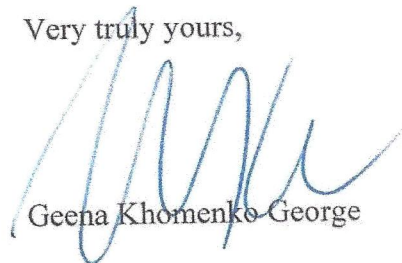 Very truly yours,
Geena Khomenko George